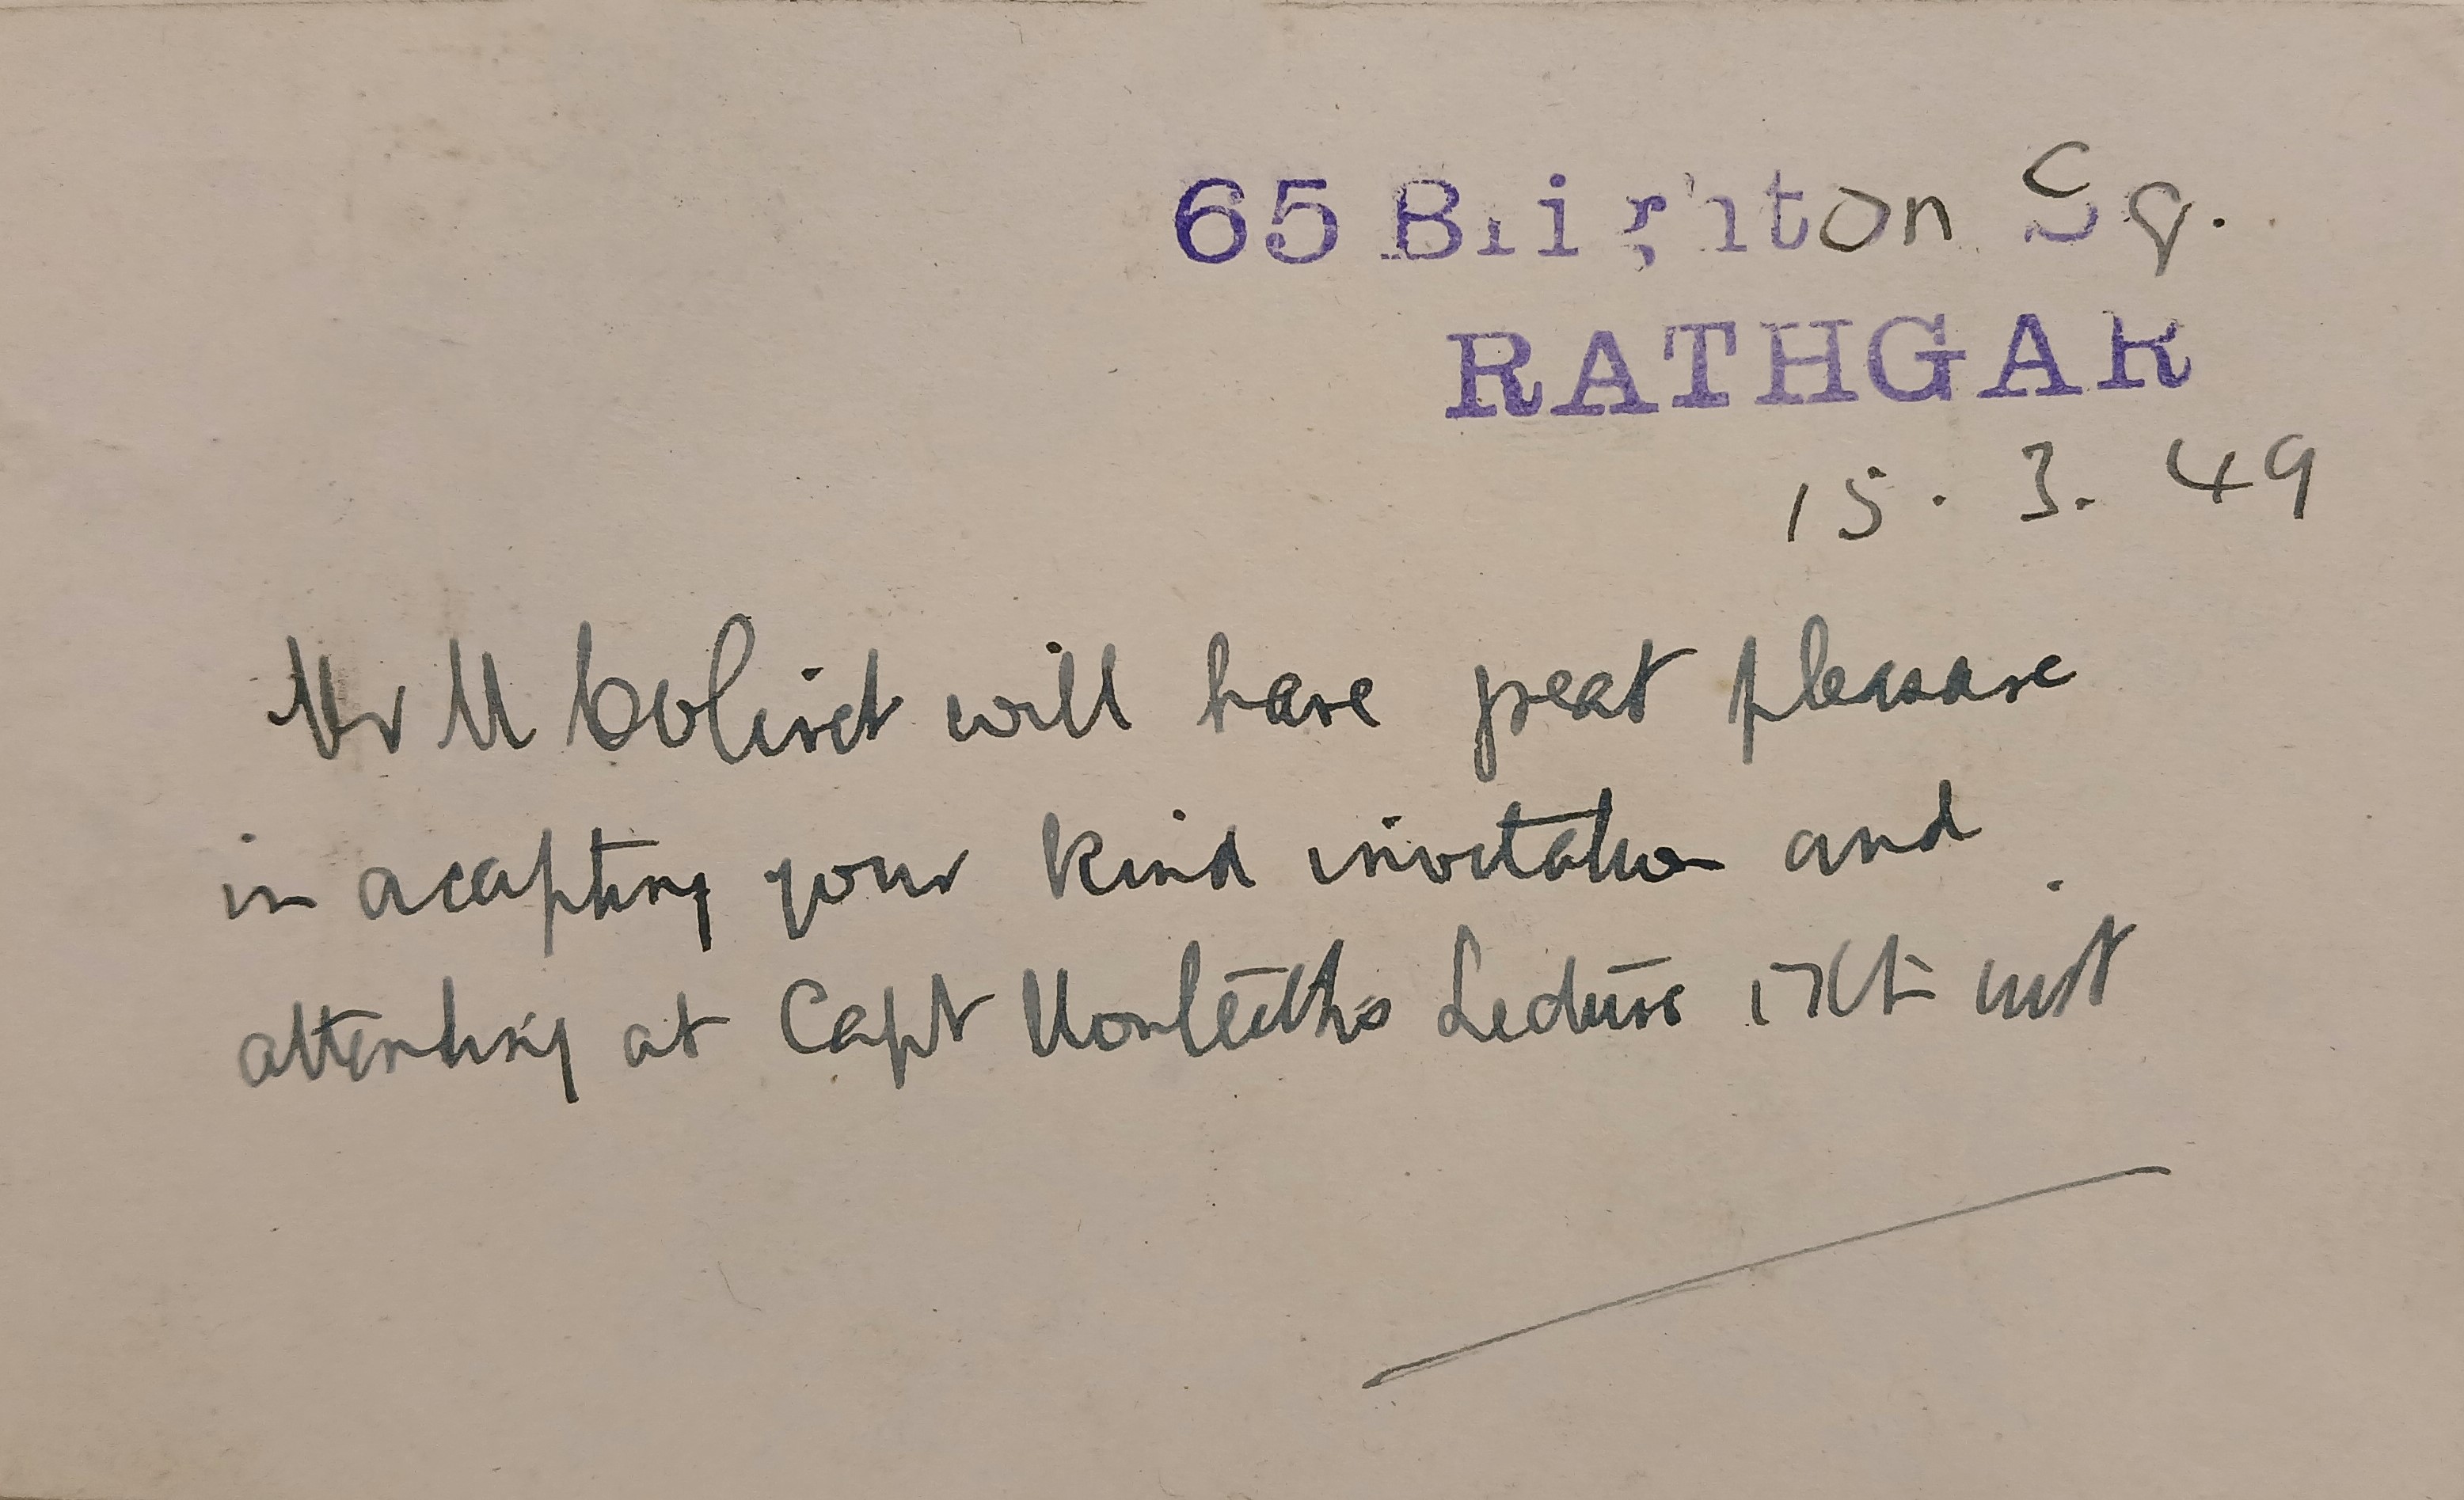 65 Brighton Sq.
RATHGAR
15.3.49
Mr M Colivet will have great pleasure
in accepting your kind invitation and
attending at Capt Monteiths Lecture 17th inst